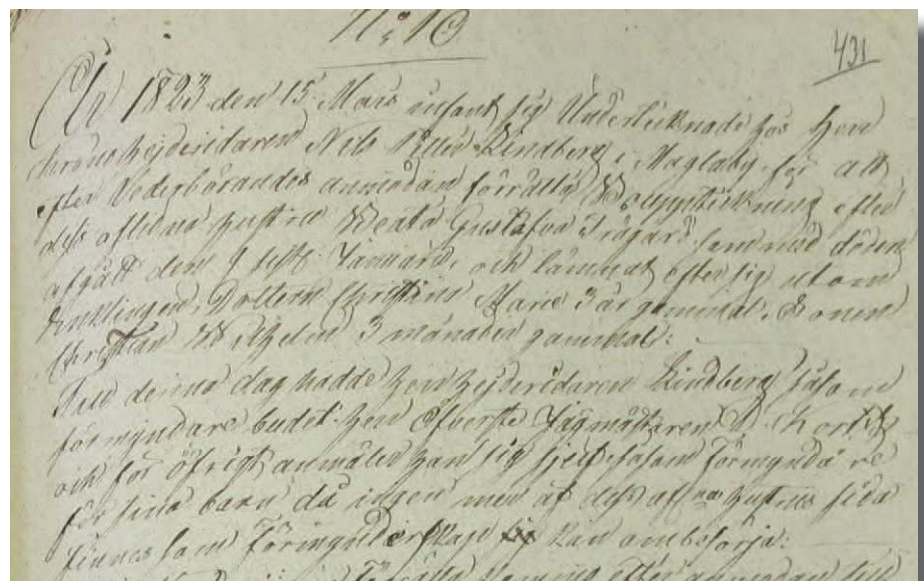 N:o 10
431
År 1823 den 15 Mars infant sig Undertecknade hos Herr
Chronohejderidaren Nils Lindberg i Maglaby för att
efter Vederbörandes anmodan förrätta Bouppteckning efter
dess aflidna hustru Beata Gustafva Trägård som med döden
afgått den 9 sistl. Januari, och lämnat efter sig utom
Enklingen, Dottern Christina Marie 3 år gammal, Sonen
Christian Wilhelm 3 månader gammal:
denna dag hadde Herr Hejderidaren Lindberg såsom
förmyndare budet Herr Öfverste Jägmästaren
och för öfrigt anmälde han sig sjelf såsom förmyndare
för sina barn, då ingen mer af dess hustrus sida
finnes som Förmynderskap kan ombesörja: